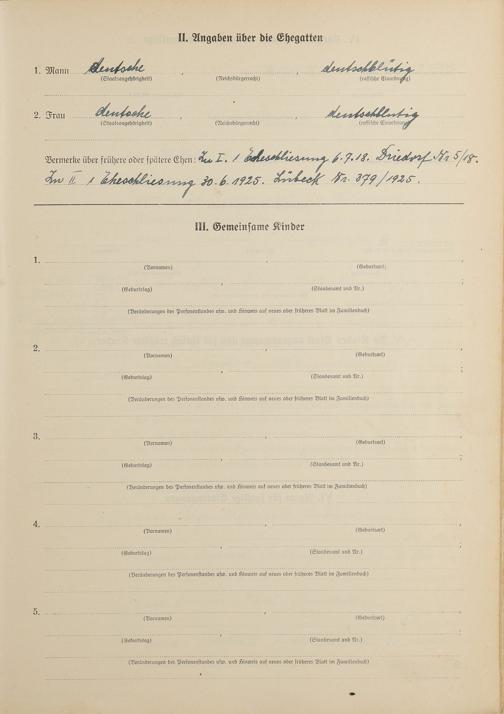 II. Angaben über die Ehegatten
1. Mann deutsche , deutschblütig
(Staatsangehörigkeit) (Reichsbürgerrecht) (rassische Einordnung)
2. Frau deutsche , deutschblütig
(Staatsangehörigkeit) (Reichsbürgerrecht) (rassische Einordnung)
Bermerke über frühere oder spätere Ehen: Zu I. 1 Eheschliesung 6.7.18. Driedorf Nr 5/18.
Zu II 1 Eheschliesung 30.6.1925. Lübeck Nr. 379/1925.
III. Gemeinsame Kinder
1. , ,
(Vornamen) (Geburtsort)
(Geburtstag) (Standesamt und Nr.)
(Veränderungen des Personenstandes usw. und Hinweis auf neues oder früheres Blatt im Familienbuch)
2. , ,
(Vornamen) (Geburtsort)
(Geburtstag) (Standesamt und Nr.)
(Veränderungen des Personenstandes usw. und Hinweis auf neues oder früheres Blatt im Familienbuch)
3. , ,
(Vornamen) (Geburtsort)
(Geburtstag) (Standesamt und Nr.)
(Veränderungen des Personenstandes usw. und Hinweis auf neues oder früheres Blatt im Familienbuch)
4. , ,
(Vornamen) (Geburtsort)
(Geburtstag) (Standesamt und Nr.)
(Veränderungen des Personenstandes usw. und Hinweis auf neues oder früheres Blatt im Familienbuch)
5. , ,
(Vornamen) (Geburtsort)
(Geburtstag) (Standesamt und Nr.)
(Veränderungen des Personenstandes usw. und Hinweis auf neues oder früheres Blatt im Familienbuch)